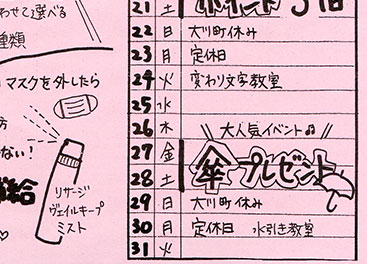 わせて選べる
種類
マスクを外したら
方
ない!
給
リサージ
ヴェイルキープ
ミスト
21 土
ポイント 5倍
22 日 大川町休み
23 月 定休日
24 火 変わり文字教室
25 水
26 木
\\ 大人気イベント♫ //
27 金
28 土
傘プレゼント
29 日 大川町休み
30 月 定休日 水引き教室
31 火